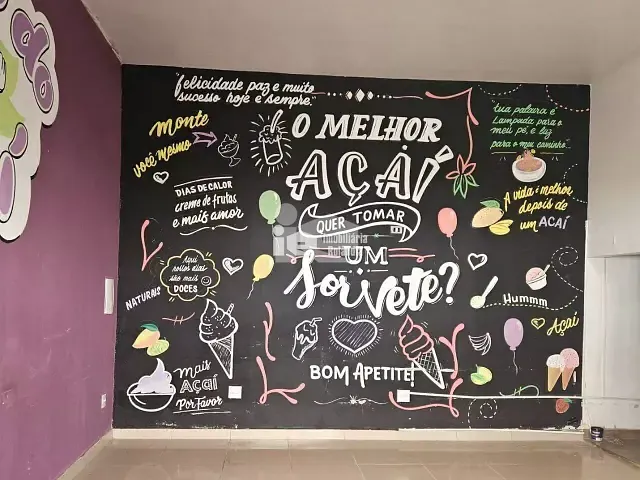 "felicidade paz e muito
sucesso hoje e sempre."
Monte
você mesmo
O MELHOR
AÇAÍ
QUER TOMAR
UM
Sorvete?
BOM APETITE!
DIAS DE CALOR
creme de frutas
e mais amor
Aqui
nossos dias
são mais
DOCES
NATURAIS
mais
AÇAÍ
Por Favor
"tua palavra é
Lampada para o
meu pé, e luz
para o meu caminho."
A vida é melhor
depois de
um AÇAÍ
Hummm
Açaí
imobiliária